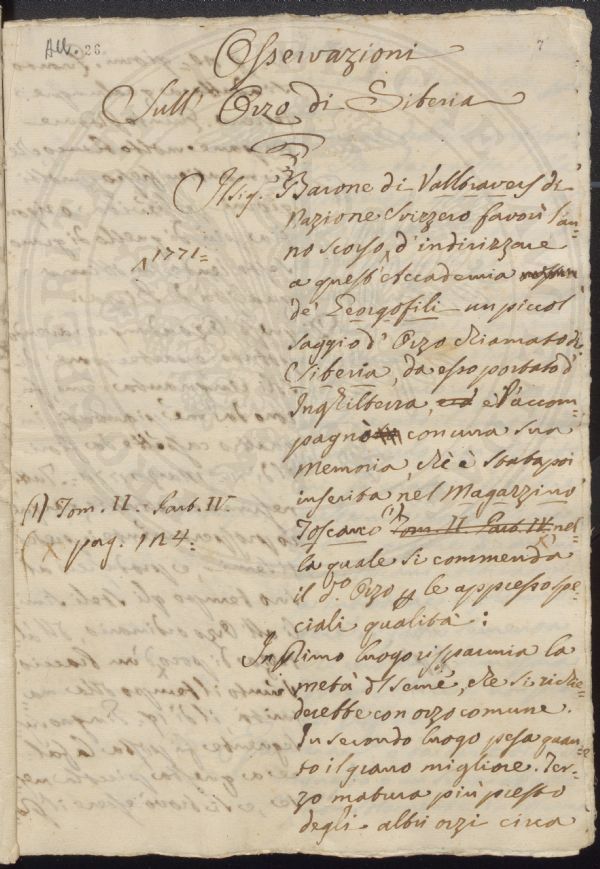 All. 26.
7
Osservazioni
Sull' Orzo di Siberia
Il sig.r Barone di Vallravers di
Nazione Svizzero favorì l'an-
no scorso, d'indirizzare
^1771=
a quest'Accademia
de' Georgofili un piccol
saggio d' Orzo chiamato di
Siberia, da esso portato d'
Inghilterra, e l'accom-
pagnò con una sua
memoria, che è stata poi
inserita nel Magazzino
Toscano (1) Tom. II. Part. IV. nel-
(1) Tom. II. Part. IV.
pag. 124.
la quale si commenda
il do. Orzo p le appresso spe-
ciali qualità:
In primo luogo risparmia la
metà di seme, che si richie-
derebbe con orzo comune.
In secondo luogo pesa quan-
to il grano migliore. Ter-
zo matura più presto
degli altri orzi circa